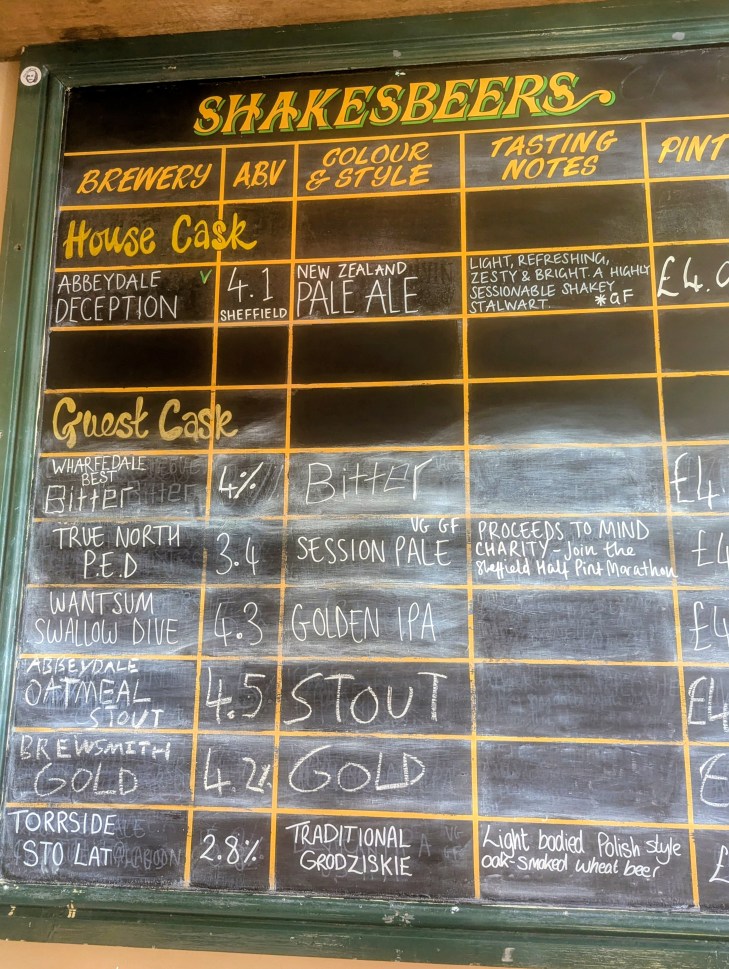 SHAKESBEERS
BREWERY A.B.V COLOUR & STYLE TASTING NOTES PINT
House Cask
ABBEYDALE
DECEPTION
V
4.1
SHEFFIELD
NEW ZEALAND
PALE ALE
LIGHT, REFRESHING,
ZESTY & BRIGHT. A HIGHLY
SESSIONABLE SHAKEY
STALWART. *GF
£4.
Guest Cask
WHARFEDALE
BEST
Bitter
4%
Bitter
£4.
TRUE NORTH
P.E.D
3.4
VG GF
SESSION PALE
PROCEEDS TO MIND
CHARITY - Join the
Sheffield Half Pint Marathon
£4
WANTSUM
SWALLOW DIVE
4.3
GOLDEN IPA
£4
ABBEYDALE
OATMEAL
STOUT
4.5
STOUT
£4
BREWSMITH
GOLD
4.2%
GOLD
£
TORRSIDE
STO LAT
2.8%
TRADITIONAL
GRODZISKIE
Light bodied Polish style
oak-smoked wheat beer
£